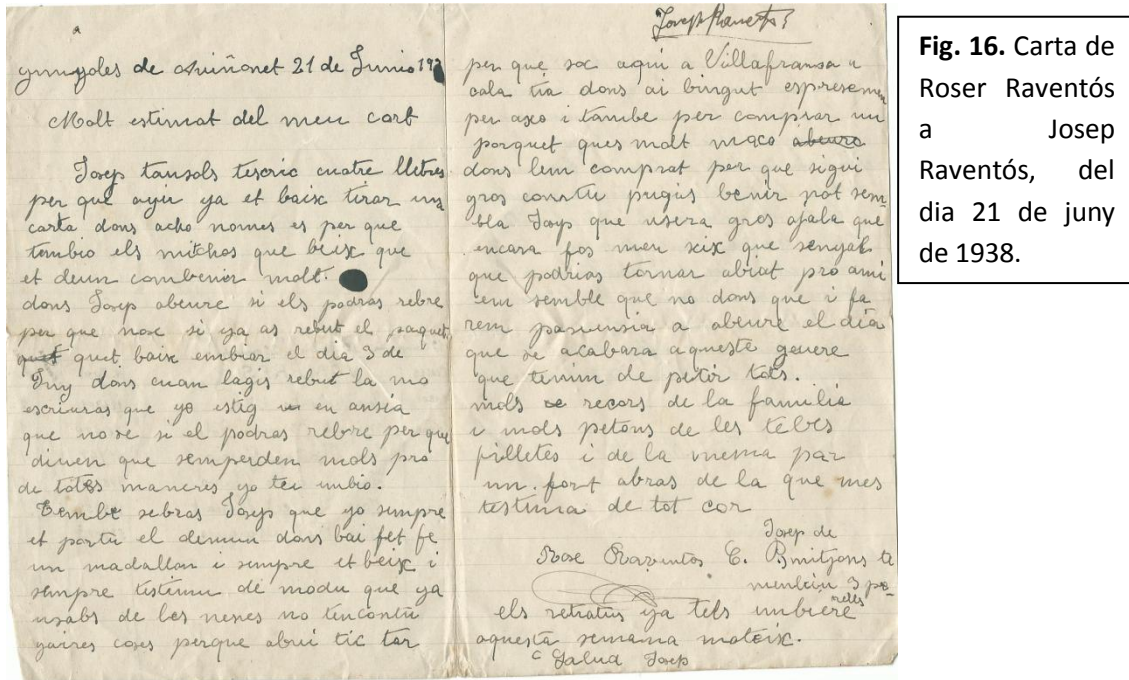 gunyoles de Aviñonet 21 de Junio 193
Molt estimat del meu cort
Josep tansols tescric cuatre lletres
per que ayir ya et baix tirar una
carta dons acho nomes es per que
tambio els michos que beix que
et deum combenir molt.
dons Josep abeure si els podras rebre
per que nose si ya as rebut el paquet
quet baix embiar el dia 3 de
Juny dons cuan lagis rebut la mo
escriuras que yo estig en ansia
que nose si el podras rebre per que
diuen que semperden mols pro
de totes maneres yo teu umbio.
Tembe sebras Josep que yo sempre
et portu el demun dons bai fet fe
un madallon i sempre et beix i
sempre testimu de modu que ya
usabs de les nenes no tencontu
gaires coses perque abui tic tar
Josep Raventós
per que soc aqui a Villafransa a
cala tia dons ai bingut espresemen
per axo i tambe per comprar un
porquet ques molt maco abeure
dons lem comprat per que sigui
gros contu pugis benir pot sem
bla Josep que usera gros ojala que
encara fos meu xix que senyal
que podrias tornar abiat pro ami
cem semble que no dons que i fa
rem pasiensia a abeure el dia
que se acabara aqueste genere
que tenim de petir tots.
mols recors de la familia
i mols petons de les tebes
filletes i de la mema par
un fort abras de la que mes
testima de tot cor
Rose Raventos C.
Josep de
mitjons te
3 pa-
rells
els retratus ya tels umbiere
aquesta semana mateix.
Salud Josep
Fig. 16. Carta de
Roser Raventós
a Josep
Raventós, del
dia 21 de juny
de 1938.